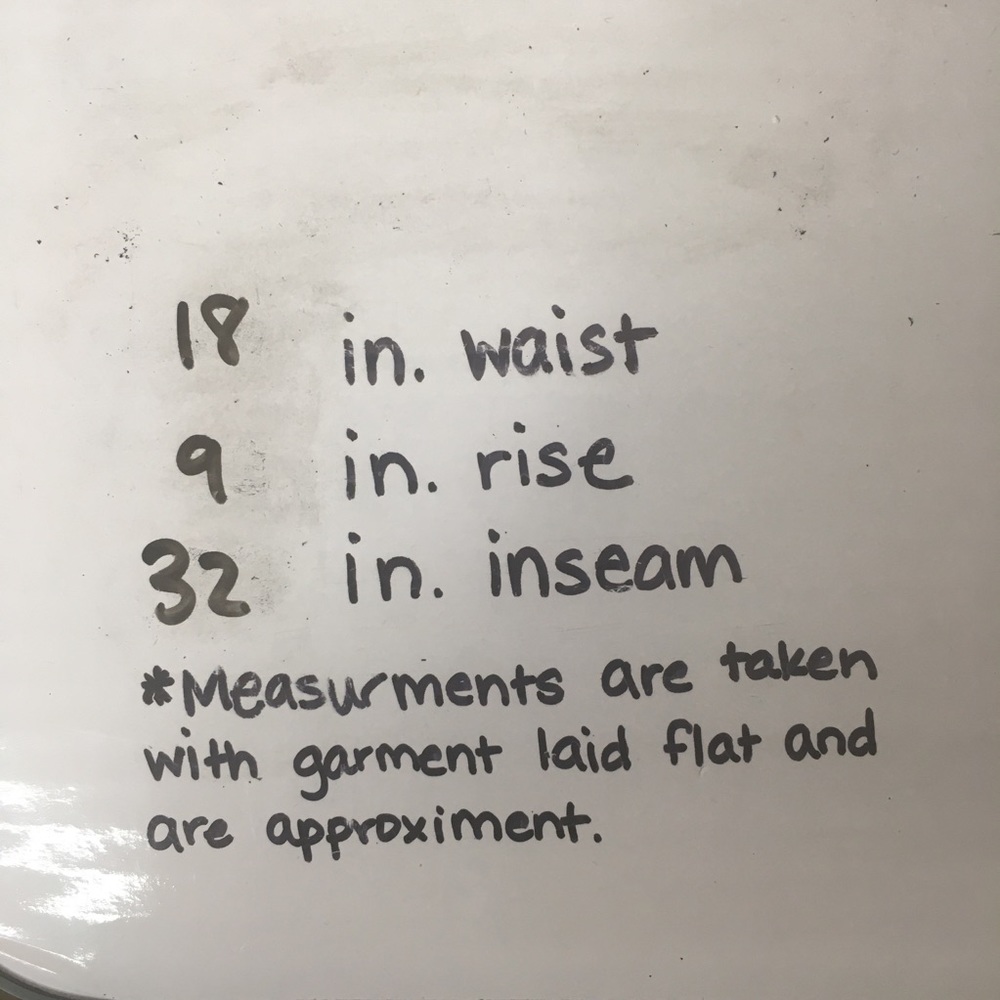 18 in. waist
9 in. rise
32 in. inseam
*Measurments are taken
with garment laid flat and
are approximent.